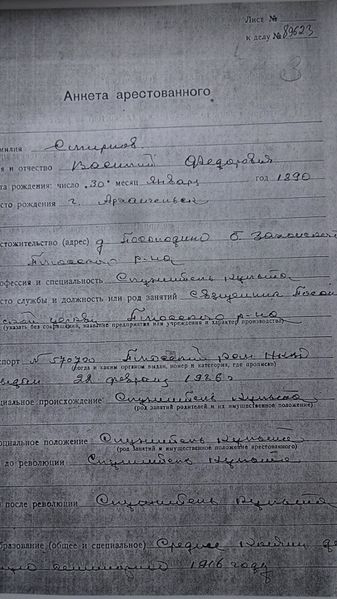 Лист №
к делу № 89623
3
Анкета арестованного
милия Смирнов
я и отчество Василий Федорович
та рождения: число „30" месяц Январь год 1890
сто рождения г. Архангельск
стожительство (адрес) д
р-на
офессия и специальность Служитель культа
сто службы и должность или род занятий Священник
церкви р-на
(указать без сокращений, название предприятия или учреждения и характер производства)
спорт №
(когда и каким органом выдан, номер и категория, где прописан)
28 февраля 1936 г
циальное происхождение Служитель культа
(род занятий родителей и их имущественное положение)
оциальное положение Служитель культа
(род занятий и имущественное положение арестованного)
до революции Служитель культа
после революции Служитель культа
бразование (общее и специальное) Среднее
семинарию 1916 году